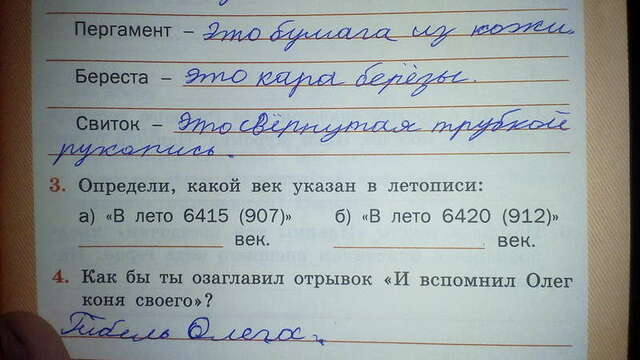 Пергамент – это бумага из кожи.
Береста – это кара берёзы.
Свиток – это свёрнутая трубкой
рукопись.
3. Определи, какой век указан в летописи:
а) «В лето 6415 (907)» б) «В лето 6420 (912)»
век. век.
4. Как бы ты озаглавил отрывок «И вспомнил Олег
коня своего»?
Гибель Олега.